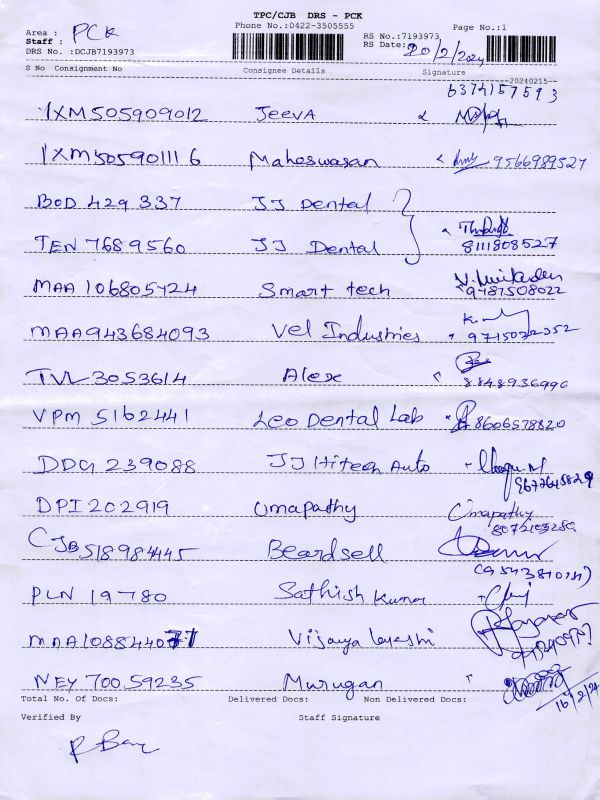 TPC/CJB DRS - PCK
Phone No.:0422-3505555
Page No.:1
Area : PCK
Staff :
DRS No. :DCJB7193973
RS No.:7193973
RS Date: 20/2/2024
S No Consignment No Consignee Details Signature
20240215
6374157593
IXM505909012 JEEVA
IXM505901116 Maheswaran 9566989527
BOD 429 337 JJ Dental
TEN 7689560 JJ Dental 8111808527
MAA 106805424 Smart tech 9487508022
MAA943684093 Vel Industries 9715022352
TVL 3053614 Alex 8848936996
VPM 5162441 Leo Dental Lab 8606578820
DDG 239088 JJ Hitech Auto 9677645829
DPI 202919 Umapathy Umapathy
8072103280
CJB 518984445 Beardsell
PLN 19780 Sathish Kumar
MAA1088440 Vijaya
NEY 700 59235 Murugan
16/2/24
Total No. Of Docs: Delivered Docs: Non Delivered Docs:
Verified By Staff Signature